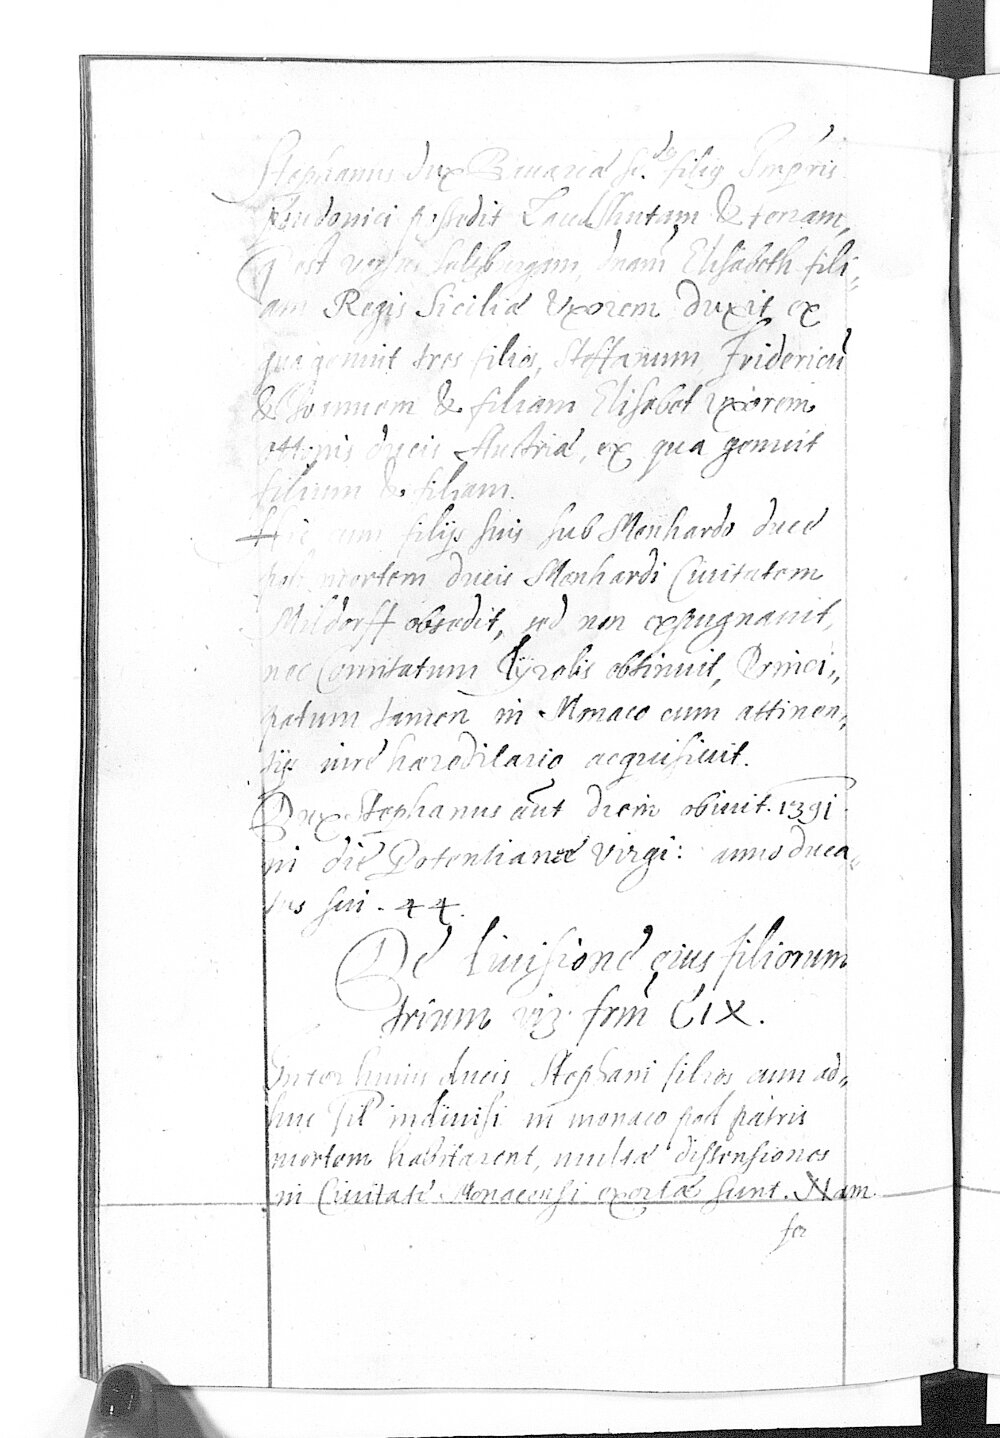 Stephanus dux Bauariæ se.dus filiꝯ Impris
Ludouici possedit Landshutam & terram,
q̃ est versus Salzburgam, dnam̃ Elisabeth fili„
am Regis Siciliæ Vxorem duxit, ex
qua genuit tres filios, Steffanum, Fridericũ
& Ioannem & filiam Elisabet vxorem
ottonis ducis Austriæ, ex qua genuit
filium & filiam.
Hic cum filijs suis sub Menhardo duce
post mortem ducis Menhardi Ciuitatem
Mildorff obsedit, sed non expugnauit,
nec Comitatum Tyrolis obtinuit, Princi„
patum tamen in Monaco cum attinen„
tijs iure hæreditario acquisiuit.
Dux Stephanus aũt diem obiuit. 1391.
in die Potentianæ Virgi: anno duca„
tus sui. 44.
De diuisione eius filiorum
trium viz. frm̃ CIX.
Inter huius ducis Stephani filios, cum ad„
huc sil' indiuisi in monaco post patris
mortem habitarent, multæ dissensiones
in Ciuitate Monacensi exortæ sunt. Nam